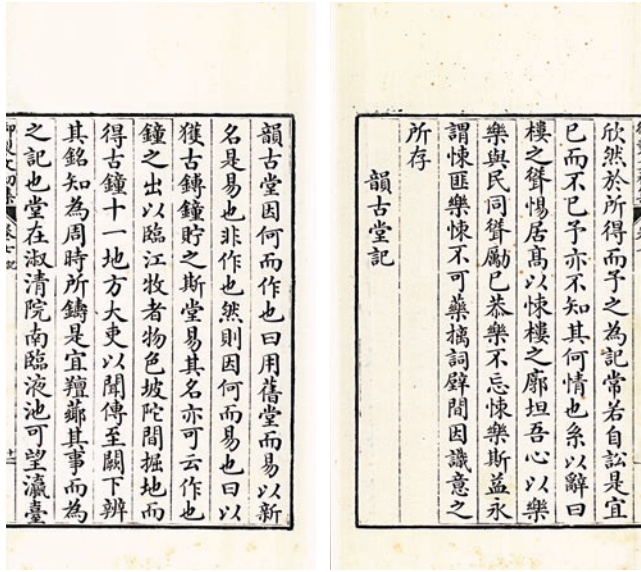 欣然於所得而予之為記常若自訟是宜
已而不已予亦不知其何情也系以辭曰
樓之聳惕居髙以悚樓之廓坦吾心以樂
樂與民同聳勵已恭樂不忘悚樂斯益永
謂悚匪樂悚不可藥摛詞壁間因識意之
所存
韻古堂記
韻古堂因何而作也曰用舊堂而易以新
名是易也非作也然則因何而易也曰以
獲古鎛鐘貯之斯堂易其名亦可云作也
鐘之出以臨江牧者物色坡陀間掘地而
得古鐘十一地方大吏以聞傳至闕下辨
其銘知為周時所鑄是宜羶薌其事而為
之記也堂在淑清院南臨液池可望瀛臺